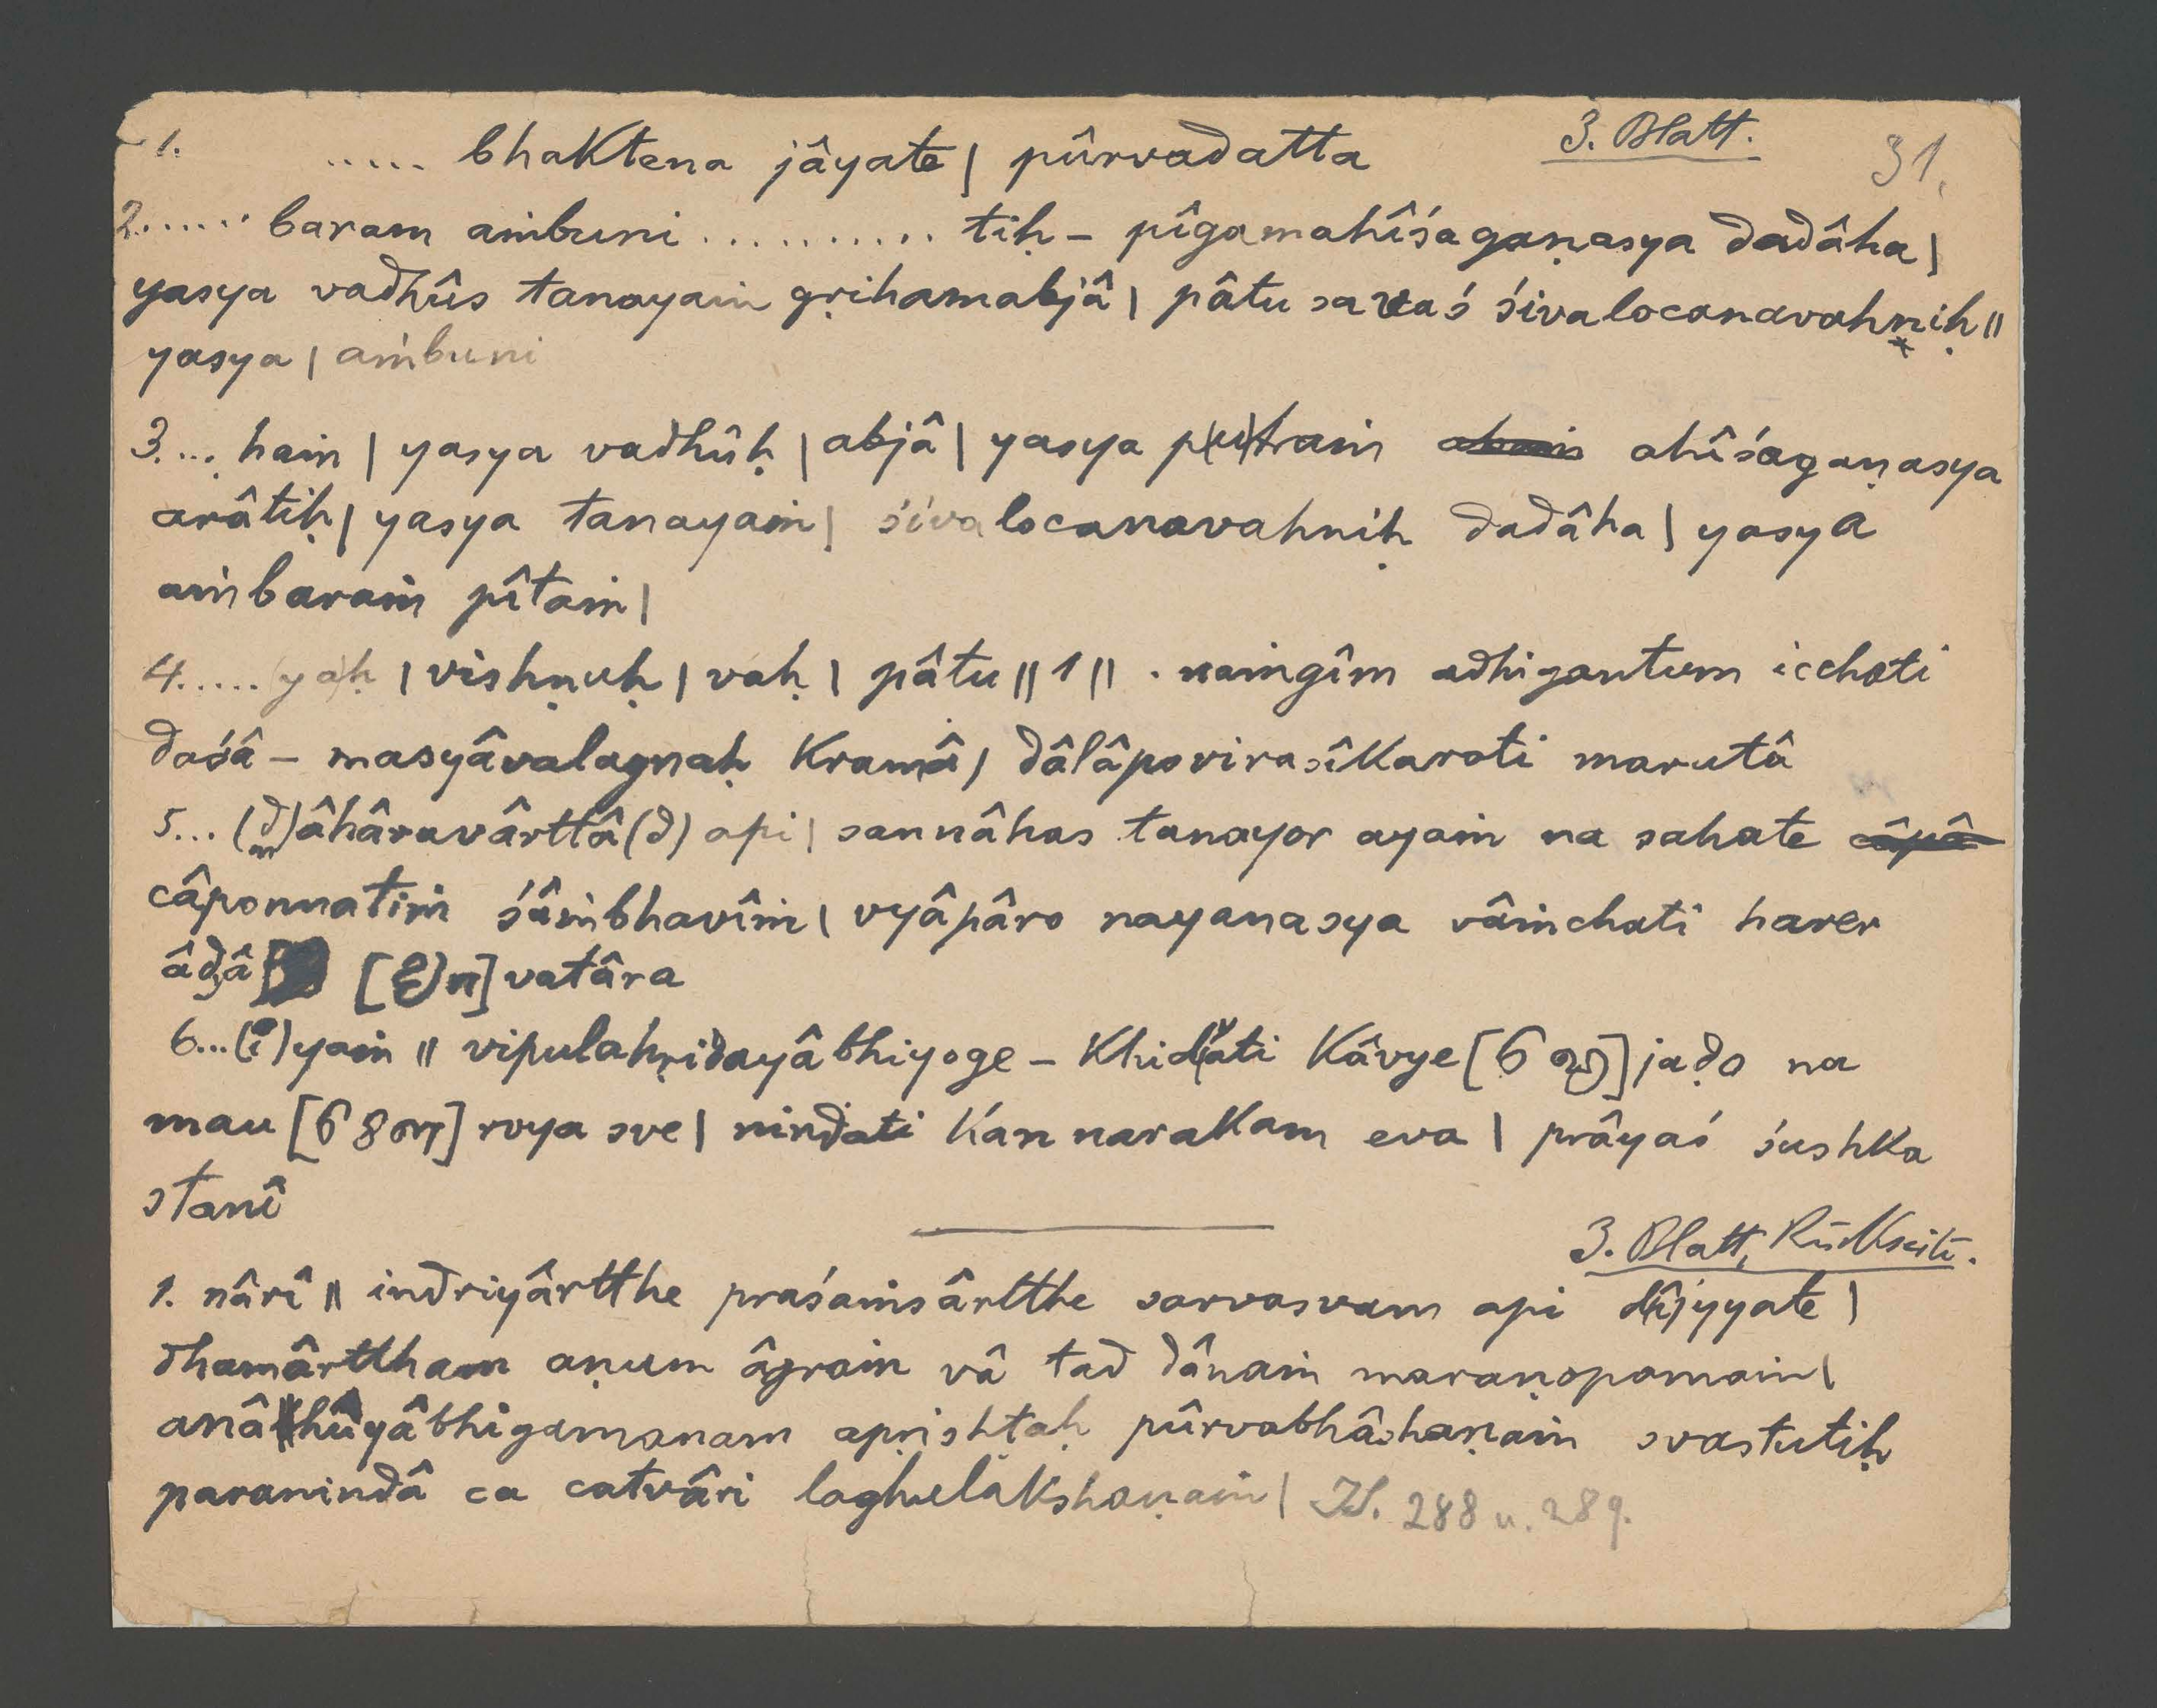 3. Blatt. 31.
1. ..... bhaktena jâyate | pûrvadatta
2...... baram aṁbuni .......... tiḥ - pîgamahîśagaṇasya dadâha |
yasya vadhûs tanayaṁ gṛihamabjâ | pâtu savaś śivalocanavahṇiḥ ||
yasya | aṁbuni
3.... haṁ | yasya vadhûḥ | abjâ | yasya p(u)traṁ ahîśagaṇasya
arâtiḥ | yasya tanayaṁ | śivalocanavahniḥ dadâha | yasya
aṁbaraṁ pîtaṁ |
4..... yaḥ | vishṇuḥ | vaḥ | pâtu || 1 || . naṁgîm adhigantum icchati
daśâ - masyâvalagnaḥ kramâ | dâlâpovirasîkaroti marutâ
5... (d)âhâravârttâ(d) api | sannâhas tanayor ayaṁ na sahate câpâ
câponnatiṁ śâṁbhavîṁ | vyâpâro nayanasya vâṁchati harer
âḍâ [ ] vatâra
6...(i)yaṁ || vipulahṛidayâbhiyoge - khidyati kâvye [ ] jaḍo na
mau [ ] rvya sve | nindati kan narakam eva | prâyaś śushka
stanî
3. Blatt, Rückseite.
1. nârî || indriyârtthe praśaṁsârtthe sarvasvam api d(î)jyyate |
dhamârttham aṇum âgraṁ vâ tad dânaṁ maraṇopamaṁ |
anâhûyâbhigamanam apṛishṭaḥ pûrvabhâshaṇaṁ svastutiḥ
paranindâ ca catvâri laghulakshaṇaṁ | 288 u. 289.